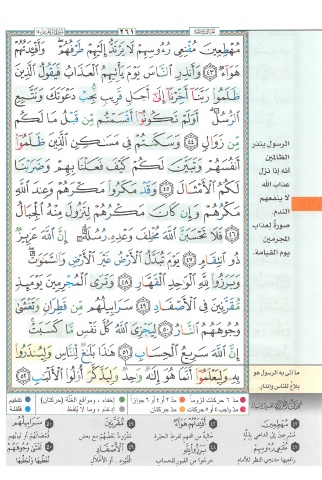 ٢٦١
مُهْطِعِينَ مُقْنِعِي رُءُوسِهِمْ لَا يَرْتَدُّ إِلَيْهِمْ طَرْفُهُمْ ۖ وَأَفْئِدَتُهُمْ
هَوَآءٌ ﴿٤٣﴾ وَأَنذِرِ ٱلنَّاسَ يَوْمَ يَأْتِيهِمُ ٱلْعَذَابُ فَيَقُولُ ٱلَّذِينَ
ظَلَمُوا۟ رَبَّنَآ أَخِّرْنَآ إِلَىٰٓ أَجَلٍ قَرِيبٍ نُّجِبْ دَعْوَتَكَ وَنَتَّبِعِ
ٱلرُّسُلَ ۗ أَوَلَمْ تَكُونُوٓا۟ أَقْسَمْتُم مِّن قَبْلُ مَا لَكُم
مِّن زَوَالٍ ﴿٤٤﴾ وَسَكَنتُمْ فِي مَسَـٰكِنِ ٱلَّذِينَ ظَلَمُوٓا۟
أَنفُسَهُمْ وَتَبَيَّنَ لَكُمْ كَيْفَ فَعَلْنَا بِهِمْ وَضَرَبْنَا
لَكُمُ ٱلْأَمْثَالَ ﴿٤٥﴾ وَقَدْ مَكَرُوا۟ مَكْرَهُمْ وَعِندَ ٱللَّهِ
مَكْرُهُمْ وَإِن كَانَ مَكْرُهُمْ لِتَزُولَ مِنْهُ ٱلْجِبَالُ
﴿٤٦﴾ فَلَا تَحْسَبَنَّ ٱللَّهَ مُخْلِفَ وَعْدِهِۦ رُسُلَهُۥٓ ۗ إِنَّ ٱللَّهَ عَزِيزٌ
ذُو ٱنتِقَامٍ ﴿٤٧﴾ يَوْمَ تُبَدَّلُ ٱلْأَرْضُ غَيْرَ ٱلْأَرْضِ وَٱلسَّمَـٰوَٰتُ ۖ
وَبَرَزُوا۟ لِلَّهِ ٱلْوَٰحِدِ ٱلْقَهَّارِ ﴿٤٨﴾ وَتَرَى ٱلْمُجْرِمِينَ يَوْمَئِذٍ
مُّقَرَّنِينَ فِي ٱلْأَصْفَادِ ﴿٤٩﴾ سَرَابِيلُهُم مِّن قَطِرَانٍ وَتَغْشَىٰ
وُجُوهَهُمُ ٱلنَّارُ ﴿٥٠﴾ لِيَجْزِيَ ٱللَّهُ كُلَّ نَفْسٍ مَّا كَسَبَتْ ۚ
إِنَّ ٱللَّهَ سَرِيعُ ٱلْحِسَابِ ﴿٥١﴾ هَـٰذَا بَلَـٰغٌ لِّلنَّاسِ وَلِيُنذَرُوا۟
بِهِۦ وَلِيَعْلَمُوٓا۟ أَنَّمَا هُوَ إِلَـٰهٌ وَٰحِدٌ وَلِيَذَّكَّرَ أُو۟لُوا۟ ٱلْأَلْبَـٰبِ ﴿٥٢﴾
الرسول ينذر
الظالمين
انه إذا نزل
عذاب الله
لا ينفعهم
الندم.
صورة لعذاب
المجرمين
يوم القيامة.
ما أتى به الرسول هو
بلاغ للناس وانذار.
مد ٦ حركات لزوما
مد ٢ أو ٤ أو ٦ جوازا
إخفاء، ومواقع الغنّة (حركتان)
تفخيم
مد واجب ٤ أو ٥ حركات
مد حركتان
إدغام، وما لا يلفظ
قلقلة
مُهْطِعِينَ
أَفْئِدَتُهُمْ هَوَآءٌ
مُقَرَّنِينَ
سَرَابِيلُهُم
بَرَزُوا لله
الأَصْفَادِ
تَغْشَى وُجُوهَهُمْ